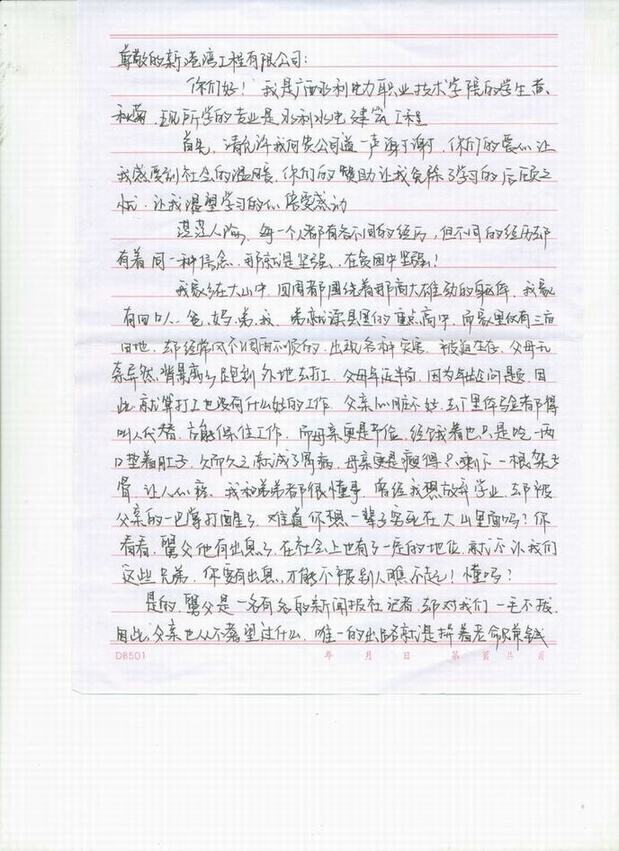 尊敬的新港湾工程有限公司:
你们好! 我是广西水利电力职业技术学院的学生黄
秋菊,现所学的专业是水利水电建筑工程
首先,请允许我向贵公司道一声谢谢,你们的爱心让
我感受到社会的温暖,你们的赞助让我免除了学习的后顾之
忧,让我渴望学习的心倍受感动
茫茫人海,每一个人都有各不同的经历,但不同的经历却
有着同一种信念,那就是坚强,在贫困中坚强!
我家乡在大山中,四周都围绕着那高大雄劲的躯体,我家
有四口人,爸、妈、弟、我,弟弟就读县里的重点高中,而家里仅有三亩
田地,却经常风不调雨不顺的,出现各种灾害,被迫生存,父母无
奈异然,背景离乡跑到外地去打工,父母年近半百,因为年龄问题,因
此,就算打工也没有什么好的工作,父亲心脏不好,去工里体验者都得
叫人代替,方能保住工作,而母亲更是节俭,经饿着也只是吃一两
口垫着肚子,久而久之,就成了胃病,母亲更是瘦得只剩下一根架子
骨,让人心疼,我和弟弟都很懂事,曾经我想放弃学业,却被
父亲的一巴掌打醒了,难道你想一辈子穷死在大山里面吗?你
看看,舅父他有出息了,在社会上也有了一定的地位,就不认我们
这些兄弟,你要有出息,才能不被别人瞧不起!懂吗?
是的,舅父是一名有名的新闻报社记者,却对我们一毛不拔,
因此,父亲也从不奢望过什么,唯一的出路就是拼着老命只为钱
DB501
年 月 日 第 页 共 页